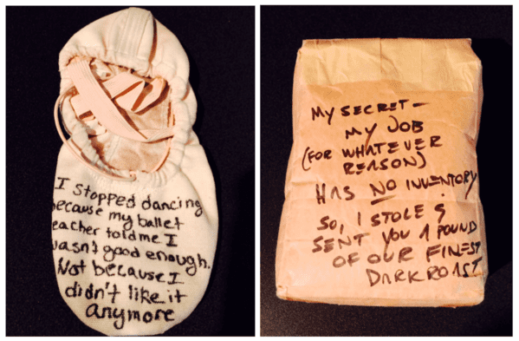 I stopped dancing
because my ballet
teacher told me I
wasn't good enough.
Not because I
didn't like it
anymore
MY SECRET—
MY JOB
(FOR WHATEVER
REASON)
HAS NO INVENTORY
SO, I STOLE &
SENT YOU 1 POUND
OF OUR FINEST
DARK ROAST